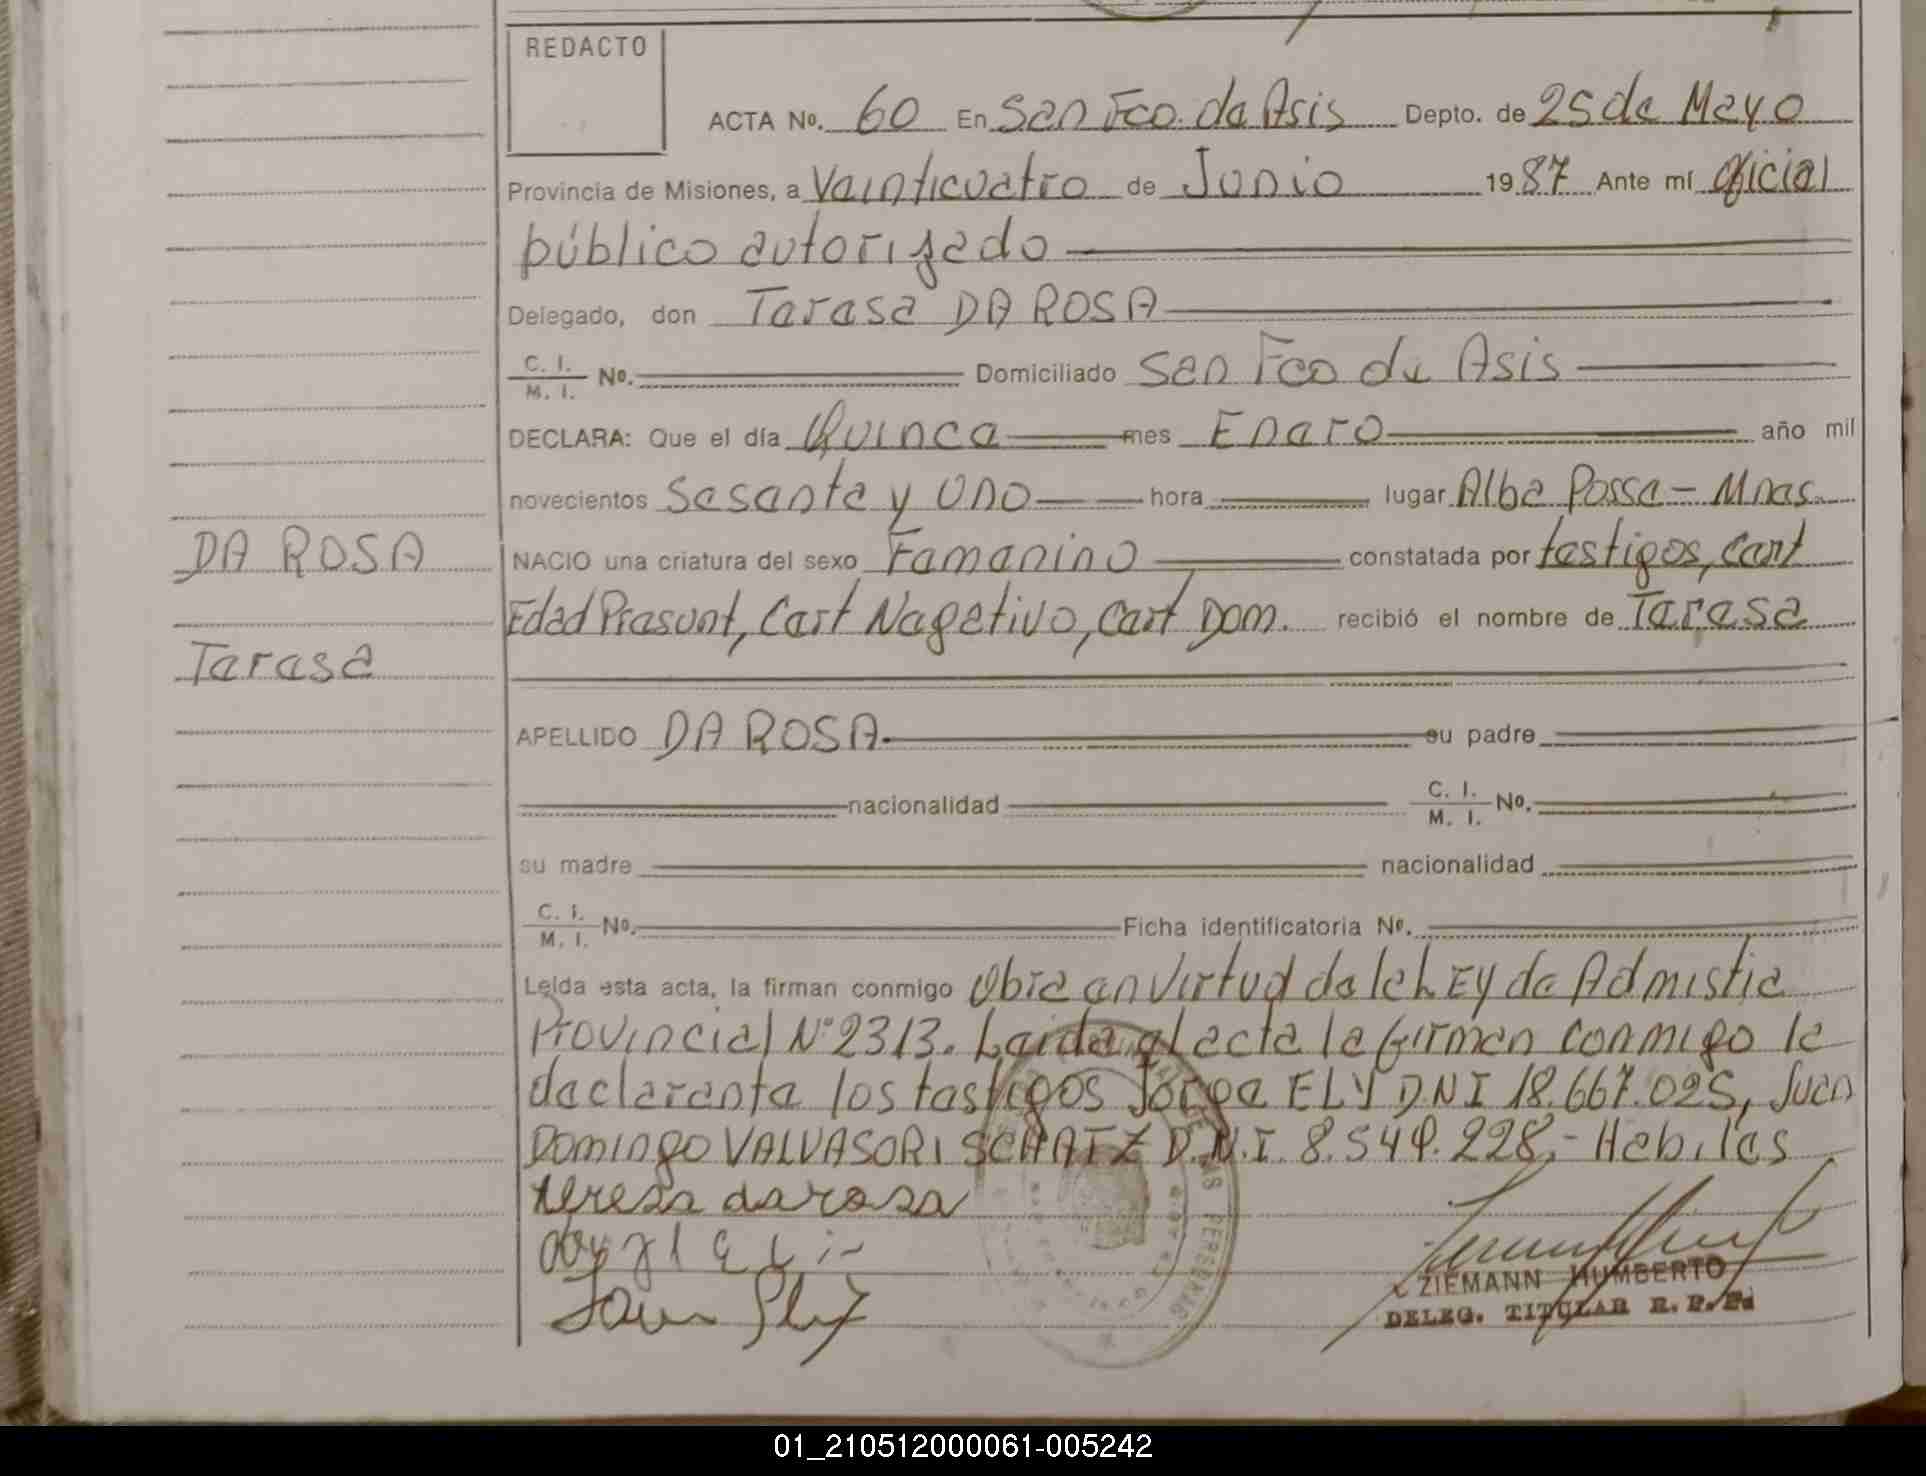 REDACTO
ACTA Nº. 60 En San Fco. de Asis Depto. de 25 de Mayo
Provincia de Misiones, a Veinticuatro de Junio 1987 Ante mí oficial
público autorizado
Delegado, don Teresa DA ROSA
C. I. / M. I. Nº. Domiciliado San Fco de Asis
DECLARA: Que el día Quince mes Enero año mil
novecientos Sesenta y Uno hora lugar Alba Posse - Mnes.
DA ROSA
NACIO una criatura del sexo Femenino constatada por testigos, Cert
Edad Presunt, Cert Negativo, Cert Dom. recibió el nombre de Teresa
Teresa
APELLIDO DA ROSA su padre
nacionalidad C. I. / M. I. Nº.
su madre nacionalidad
C. I. / M. I. Nº. Ficha identificatoria Nº.
Leída esta acta, la firman conmigo Obra en Virtud de la LEy de Admistia
Provincial Nº 2313. Leida el acta la firman conmigo la
declarante los testigos Jorge ELY D.N.I 18.667.025, Juan
Domingo VALVASORI SCHATZ D.N.I. 8.549.228.- Habiles
teresa da rosa
ZIEMANN HUMBERTO
DELEG. TITULAR R. P. P.
01_210512000061-005242